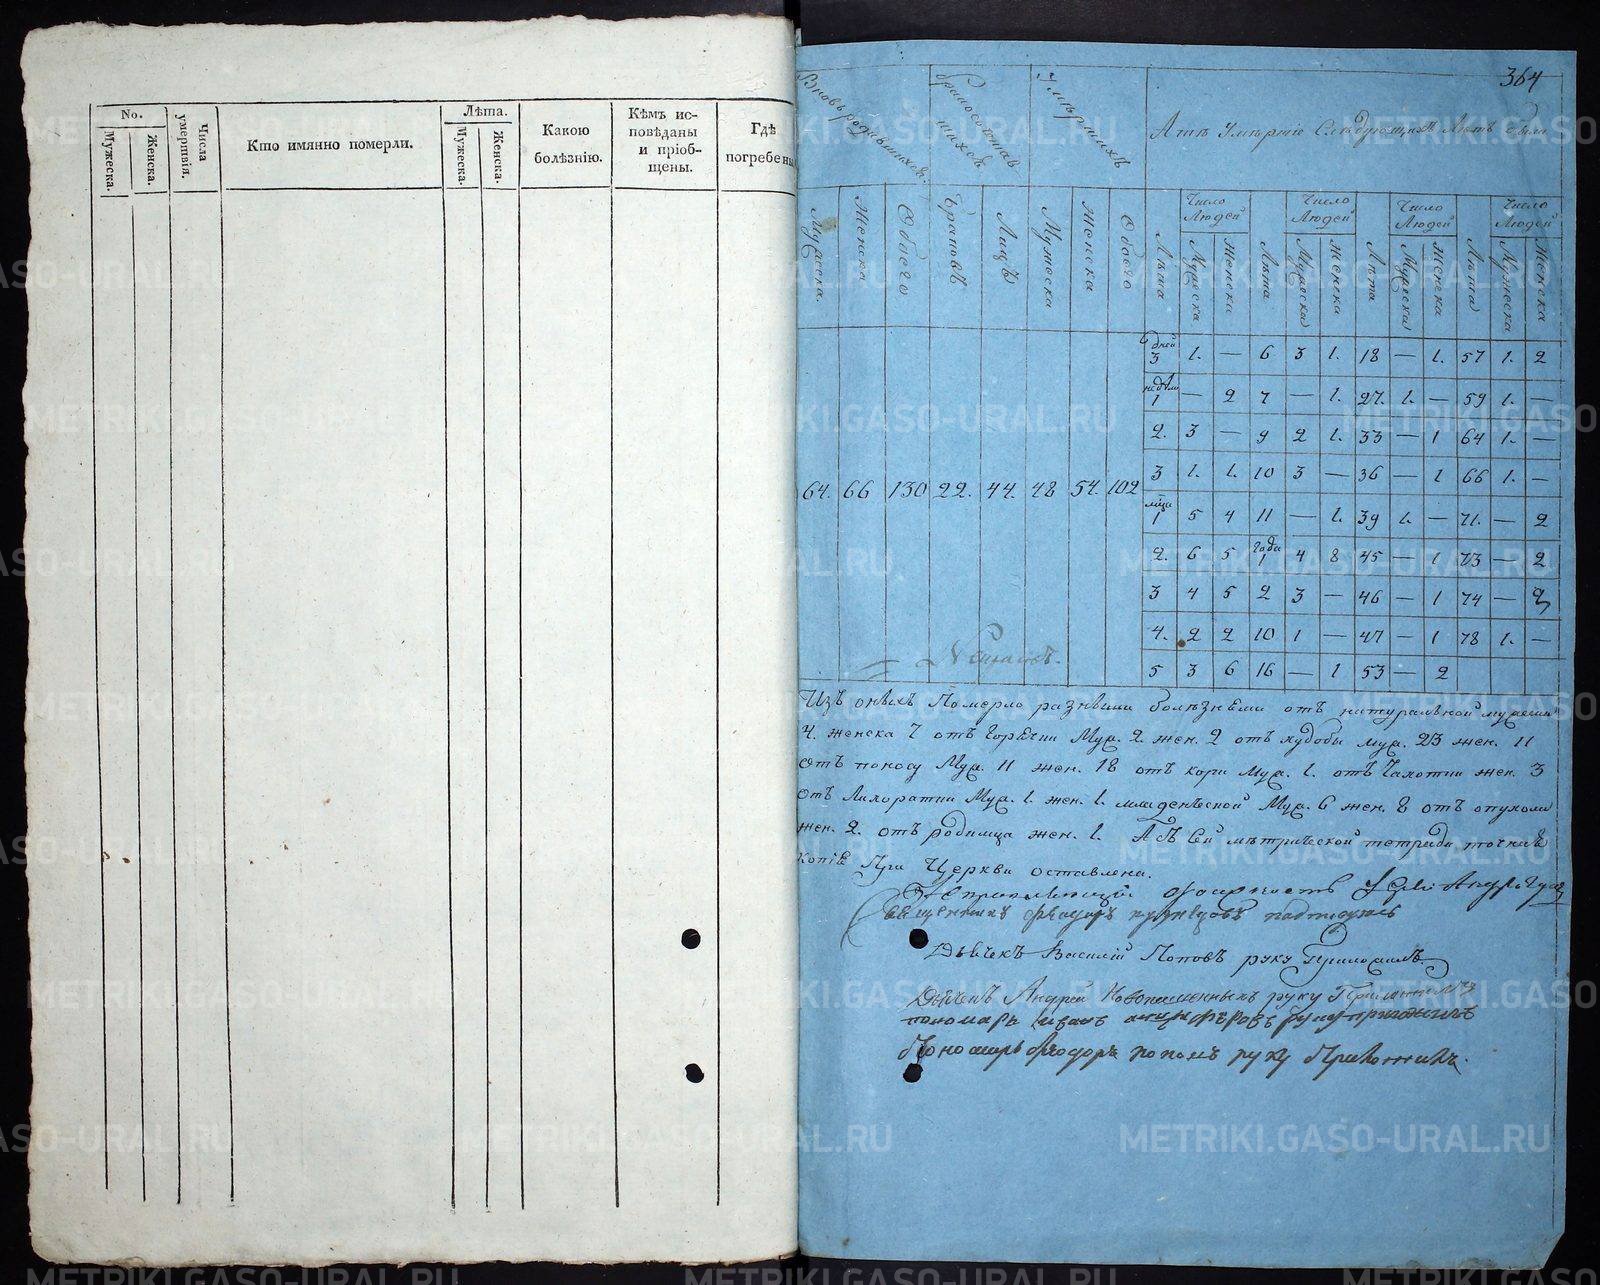 No.
Мужеска.
Женска.
Числа умертвiя.
Кто имянно померли.
Лѣта.
Мужеска.
Женска.
Какою болѣзнiю.
Кѣмъ ис-
повѣданы
и прiоб-
щены.
Гдѣ
погребены
364
Вновь родившихся
умершихъ
А оне умершiе следующихъ лѣтъ были
Мужеска
Женска
Обоего
Браковъ
Лицъ
Мужеска
Женска
Обоего
Лѣта
Число Людей
Мужеска
Женска
Лѣта
Число Людей
Мужеска
Женска
Лѣта
Число Людей
Мужеска
Женска
Лѣта
Число Людей
Мужеска
Женска
64. 66 130 22. 44. 48 54. 102
дней 3 1. — 6 3 1. 18 — 1. 57 1. 2
недѣли 1 — 2 7 — 1. 27. 1. — 59 1. —
2. 3 — 9 2 1. 33 — 1 64 1. —
3 1. 1. 10 3 — 36 — 1 66 1. —
мца 1 5 4 11 — 1. 39 1. — 71. — 2
2. 6 5 года 1 4 8 45 — 1 73 — 2
3 4 5 2 3 — 46 — 1 74 — 2
4. 2 2 10 1 — 47 — 1 78 1. —
5 3 6 16 — 1 53 — 2
Изъ оныхъ Померло разными болѣзнями отъ натуральной мужеска
4. женска 7 отъ горячки Муж. 2. жен. 2 отъ худобы муж. 23 жен. 11
отъ поносу Муж. 11 жен. 18 отъ кори Муж. 1. отъ Чахотки жен. 3
отъ Лихоратки Муж. 1. жен. 1. младенческой Муж. 6 жен. 8 отъ опухоли
жен. 2. отъ родимца жен. 1. Асъ сей метрической тетради точная
копiя При Церкви оставлена.
священникъ Феодоръ кузнецовъ подписуюсь
Дьячекъ Василiй Поповъ руку Приложилъ
Дьячекъ Андрей Новопашенныхъ руку Приложилъ
пономарь иванъ руку приложилъ
Пономарь Феодоръ поповъ руку Приложилъ.
METRIKI.GASO-URAL.RU